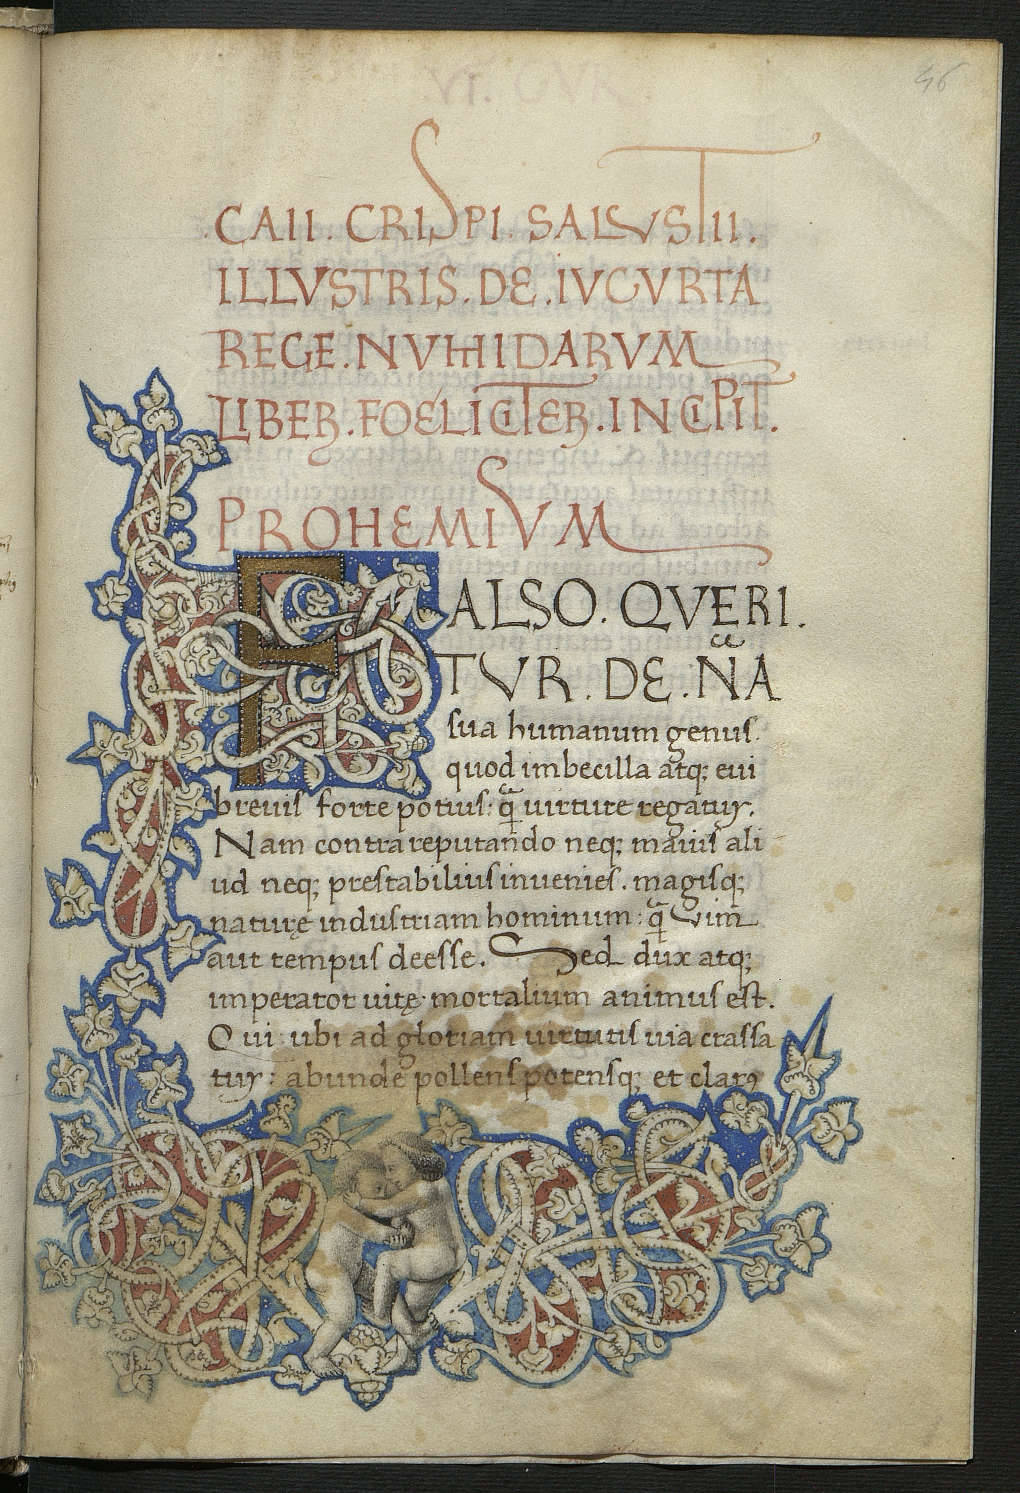 46
.CAII. CRISPI. SALVSTII.
ILLVSTRIS. DE. IVGVRTA
REGE. NVMIDARVM
LIBER. FOELICITER. INCIPIT.
PROHEMIVM
FALSO. QVERI.
TVR. DE. N̄A
sua humanum genus.
quod imbecilla atq; eui
breuis forte potius: q̄ uirtute regatur.
Nam contra reputando neq; maius ali
ud neq; prestabilius inuenies. magisq;
naturę industriam hominum: q̄ Vim
aut tempus deesse. Sed dux atq;
imperator uitę mortalium animus est.
Qui ubi ad gloriam uirtutis uia crassa
tur: abunde pollens potensq; et clarꝰ